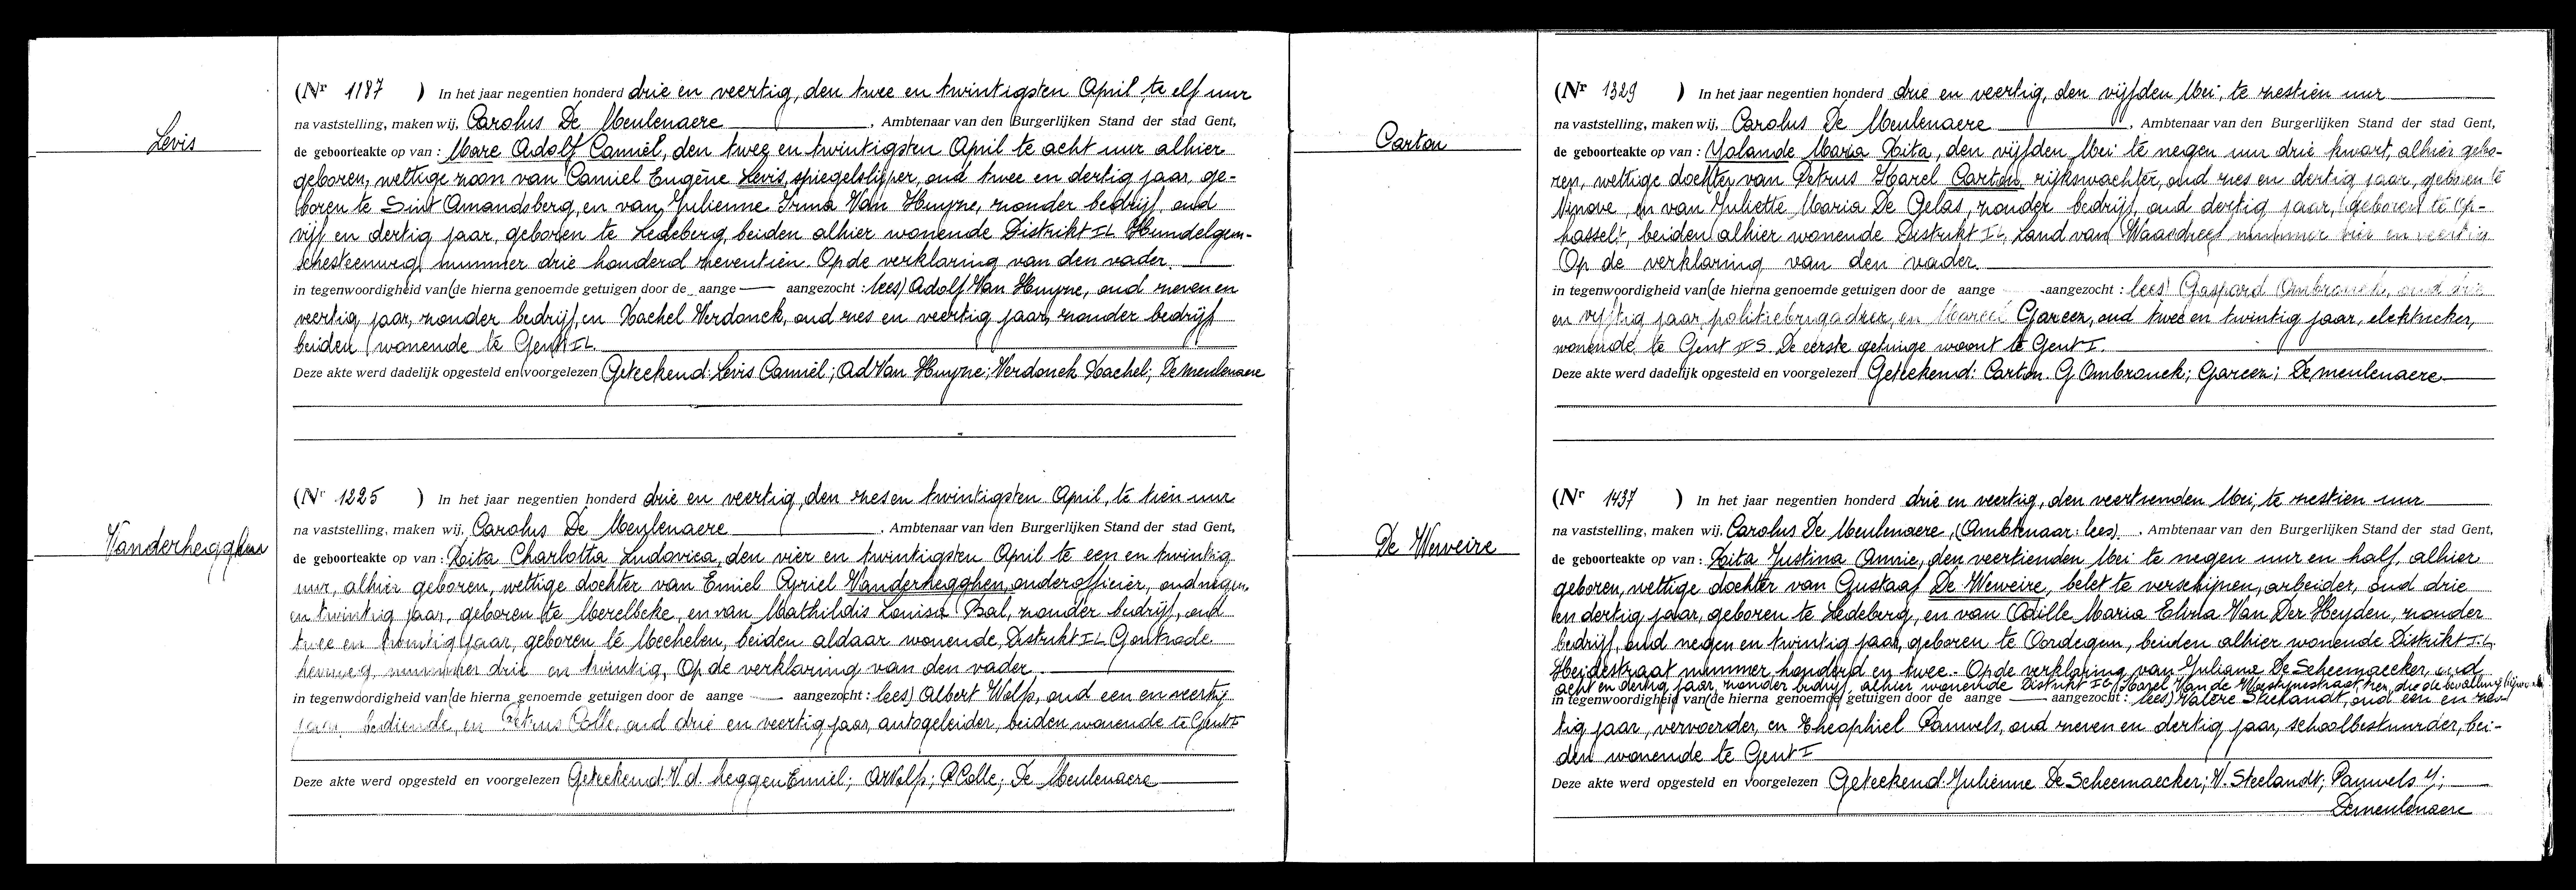 Levis
(Nr 1187 ) In het jaar negentien honderd drie en veertig, den twee en twintigsten April, te elf uur
na vaststelling, maken wij, Carolus De Meulenaere, Ambtenaar van den Burgerlijken Stand der stad Gent,
de geboorteakte op van : Marc Adolf Camiel, den twee en twintigsten April te acht uur alhier
geboren, wettige zoon van Camiel Eugène Levis, spiegelslijper, oud twee en dertig jaar, ge-
boren te Sint Amandsberg, en van Julienne Irma Van Huyze, zonder bedrijf, oud
vijf en dertig jaar, geboren te Ledeberg, beiden alhier wonende Distrikt IL Hundelgem-
schesteenweg, nummer drie honderd zeventien. Op de verklaring van den vader.
in tegenwoordigheid van (de hierna genoemde getuigen door de aange — aangezocht : lees) Adolf Van Huyze, oud zeven en
veertig jaar, zonder bedrijf, en Rachel Verdonck, oud zes en veertig jaar, zonder bedrijf
beiden wonende te Gent IL.
Deze akte werd dadelijk opgesteld en voorgelezen Geteekend: Levis Camiel; Ad Van Huyze; Verdonck Rachel; Demeulenaere
Vanderhegghen
(Nr 1225 ) In het jaar negentien honderd drie en veertig, den zes en twintigsten April, te tien uur
na vaststelling, maken wij, Carolus De Meulenaere, Ambtenaar van den Burgerlijken Stand der stad Gent,
de geboorteakte op van : Rita Charlotta Ludovica, den vier en twintigsten April te een en twintig
uur, alhier geboren, wettige dochter van Emiel Cyriel Vanderhegghen, onderofficier, oud negen
en twintig jaar, geboren te Merelbeke, en van Mathildis Louisa Bal, zonder bedrijf, oud
twee en twintig jaar, geboren te Mechelen, beiden aldaar wonende, Distrikt IL Gontrode
heirweg, nummer drie en twintig, Op de verklaring van den vader.
in tegenwoordigheid van (de hierna genoemde getuigen door de aange — aangezocht : lees) Albert Wulfs, oud een en veertig
jaar, bediende, en Petrus Colle, oud drie en veertig jaar, autogeleider, beiden wonende te Gent I
Deze akte werd opgesteld en voorgelezen Geteekend: V.d. heggen Emiel; P Colle; De Meulenaere
Carton
(Nr 1329 ) In het jaar negentien honderd drie en veertig, den vijfden Mei, te zestien uur
na vaststelling, maken wij, Carolus De Meulenaere, Ambtenaar van den Burgerlijken Stand der stad Gent,
de geboorteakte op van : Yolande Maria Rita, den vijfden Mei te negen uur drie kwart, alhier gebo-
ren, wettige dochter van Petrus Karel Carton, rijkswachter, oud zes en dertig jaar, geboren te
Ninove, en van Juliette Maria De Gelas, zonder bedrijf, oud dertig jaar, geboren te Op-
hasselt, beiden alhier wonende Distrikt IL, Land van Waasdreef nummer vier en veertig
Op de verklaring van den vader.
in tegenwoordigheid van (de hierna genoemde getuigen door de aange aangezocht : lees) Gaspard Ombrouck, oud
en vijftig jaar, politiebrigadier, en Marcel Garcez, oud twee en twintig jaar, elektrieker,
wonende te Gent De eerste getuige woont te Gent I.
Deze akte werd dadelijk opgesteld en voorgelezen Geteekend: Carton. G Ombrouck; Garcez; Demeulenaere
De Weweire
(Nr 1437 ) In het jaar negentien honderd drie en veertig, den veertienden Mei, te zestien uur
na vaststelling, maken wij, Carolus De Meulenaere, (Ambtenaar: lees), Ambtenaar van den Burgerlijken Stand der stad Gent,
de geboorteakte op van : Rita Justina Annie, den veertienden Mei te negen uur en half, alhier
geboren, wettige dochter van Gustaaf De Weweire, belet te verschijnen, arbeider, oud drie
en dertig jaar, geboren te Ledeberg, en van Odille Maria Elvra Van Der Heyden, zonder
bedrijf, oud negen en twintig jaar, geboren te Oordegem, beiden alhier wonende Distrikt IL
Heidestraat nummer honderd en twee. Op de verklaring van Juliana De Scheemaecker, oud
acht en dertig jaar, zonder bedrijf, alhier wonende Distrikt IL, Karel Van de Woestynestraat, die de bevalling bijwoonde
in tegenwoordigheid van (de hierna genoemde getuigen door de aange — aangezocht : lees) Valère Steelandt, oud een en
tig jaar, vervoerder, en Theophiel Pauwels, oud zeven en dertig jaar, schoolbestuurder, bei-
den wonende te Gent I
Deze akte werd opgesteld en voorgelezen Geteekend: Julienne De Scheemaecker; V. Steelandt; Pauwels
Demeulenaere